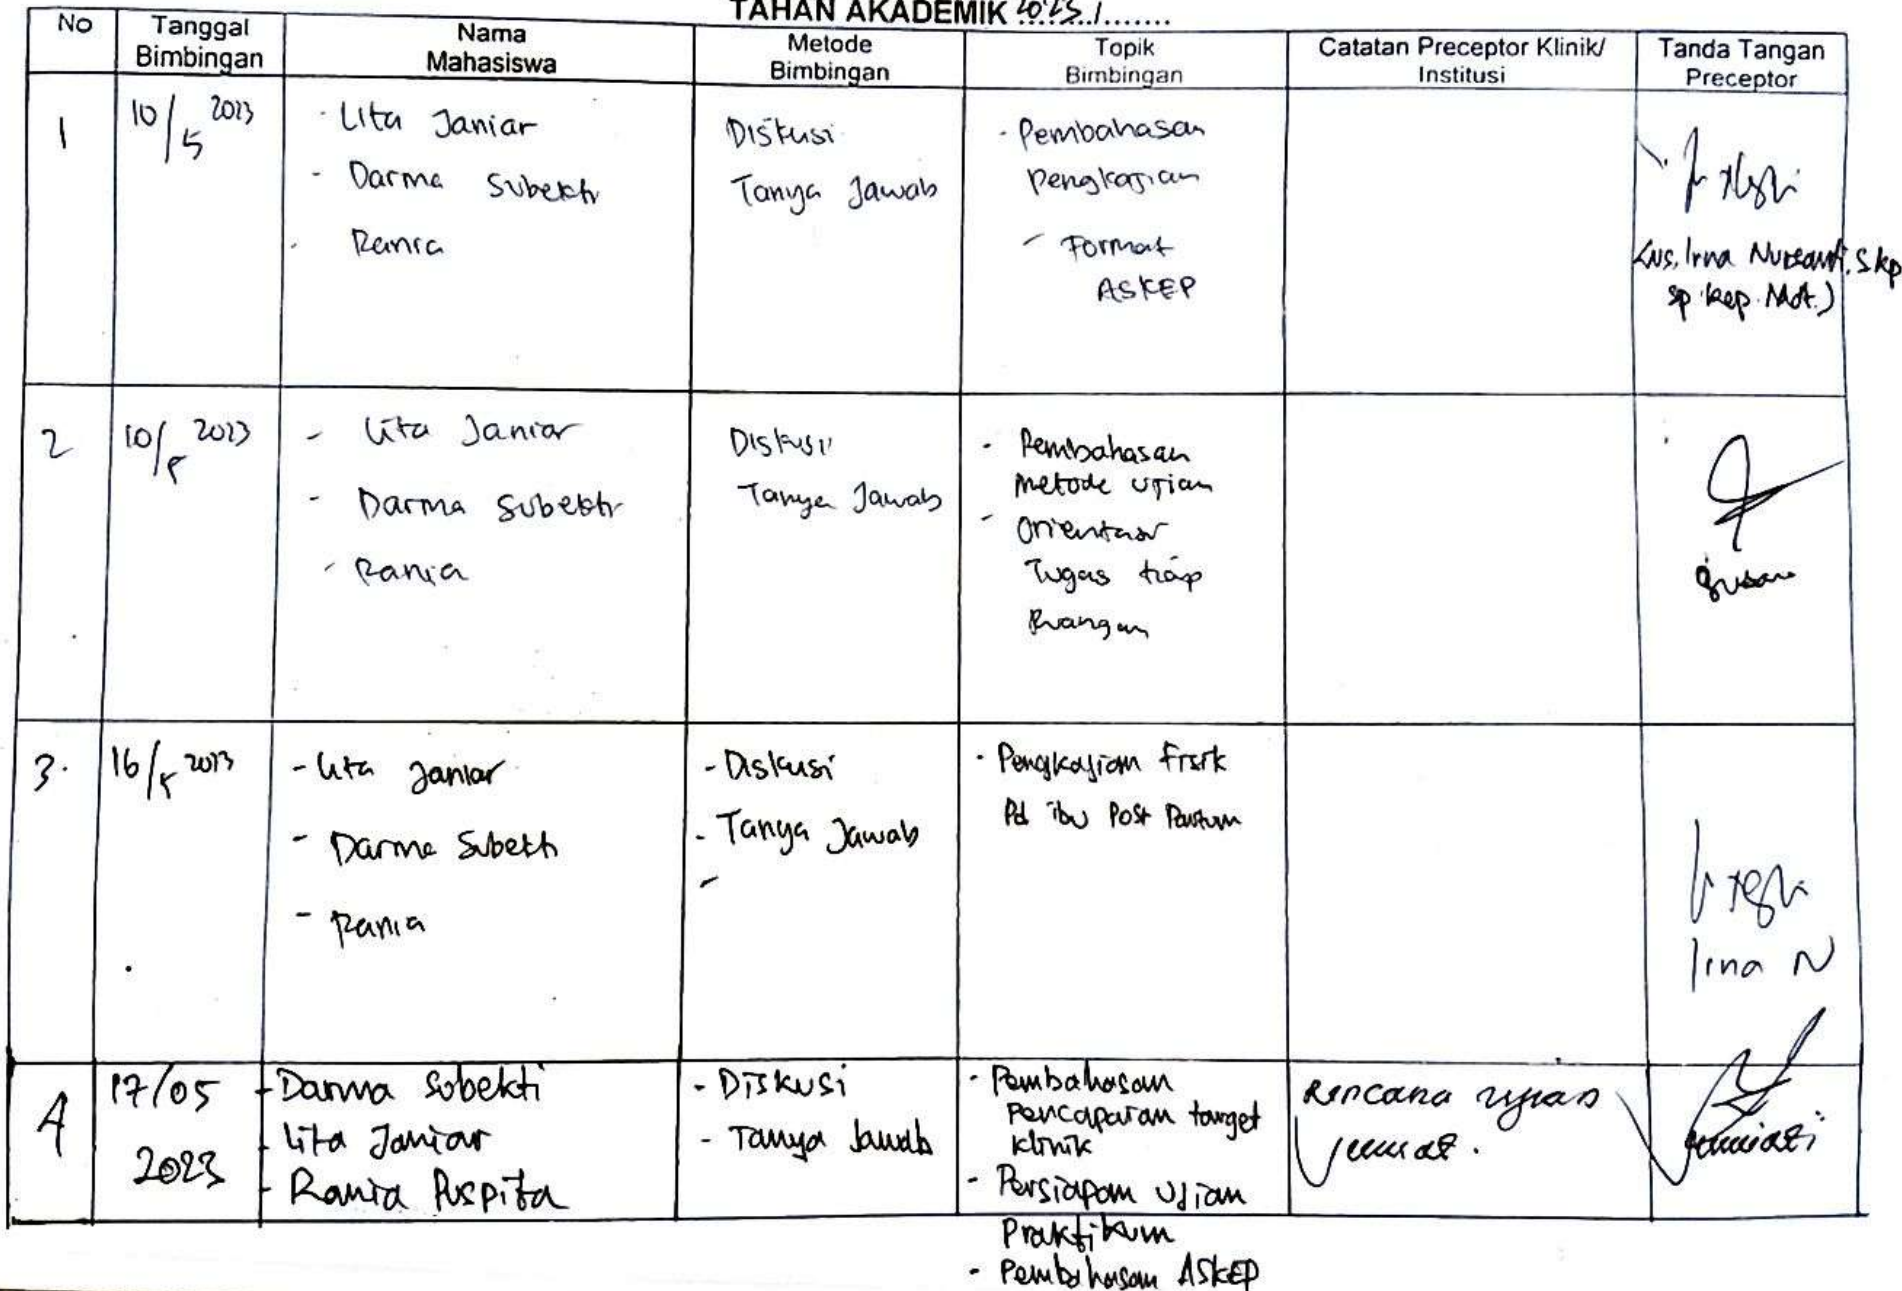 TAHAN AKADEMIK 2023 /.......
No
Tanggal
Bimbingan
Nama
Mahasiswa
Metode
Bimbingan
Topik
Bimbingan
Catatan Preceptor Klinik/
Institusi
Tanda Tangan
Preceptor
1
10/5 2023
- Lita Janiar
- Darma Subekti
- Rania
Diskusi
Tanya Jawab
- Pembahasan
pengkajian
- Format
ASKEP
Irna Nursanti. Skp
sp. kep. Mat.)
2
10/5 2023
- Lita Janiar
- Darma Subekti
- Rania
Diskusi
Tanya Jawab
- Pembahasan
metode ujian
- Orientasi
Tugas tiap
Ruangan
3.
16/5 2023
- Lita Janiar
- Darma Subekti
- Rania
- Diskusi
- Tanya Jawab
-
- Pengkajian Fisik
Pd ibu Post Partum
Irna N
4
17/05
2023
- Darma Subekti
- Lita Janiar
- Rania Puspita
- Diskusi
- Tanya Jawab
- Pembahasan
pencapaian target
klinik
- Persiapan Ujian
Praktikum
- Pembahasan ASKEP
Rencana ujian
Jumat.